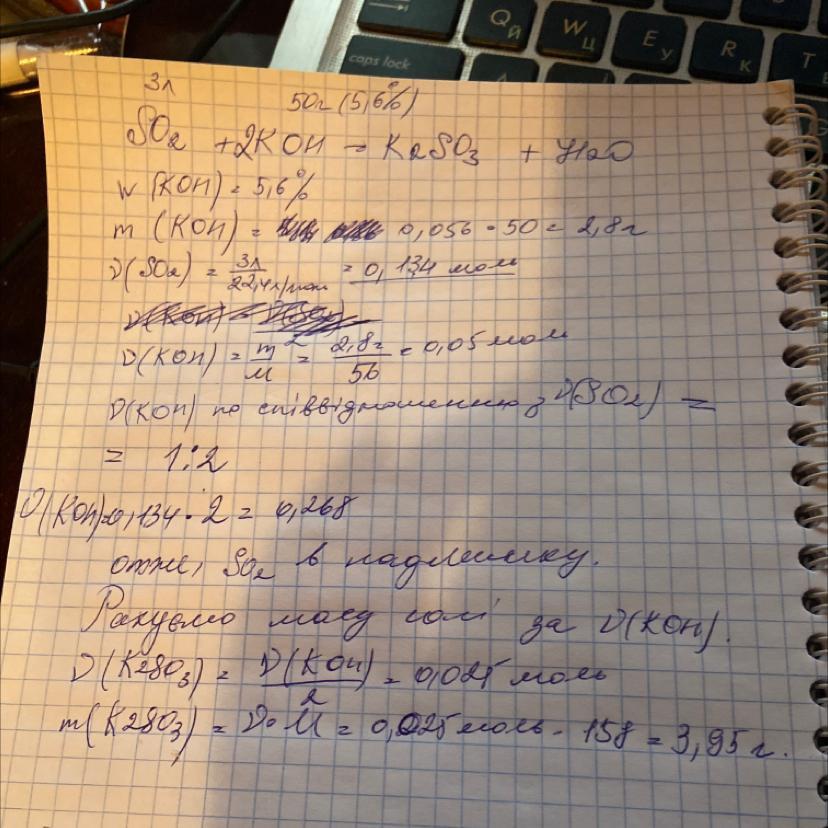 caps lock
Q Й
W Ц
E У
R К
T
3л 50г (5,6%)
SO2 + 2KOH = K2SO3 + H2O
W (KOH) = 5,6%
m (KOH) = 0,056 • 50 = 2,8г
ν(SO2) = 3л / 22,4л/мол = 0,134 мол
ν(KOH) = m / M = 2,8г / 56 = 0,05 мол
ν(KOH) по співвідношенню з ν(SO2) =
= 1:2
ν(KOH)=0,134 • 2 = 0,268
отже, SO2 в надлишку.
Рахуємо масу солі за ν(KOH).
ν(K2SO3) = ν(KOH) / 2 = 0,025 моль
m(K2SO3) = ν • M = 0,025 моль • 158 = 3,95 г.